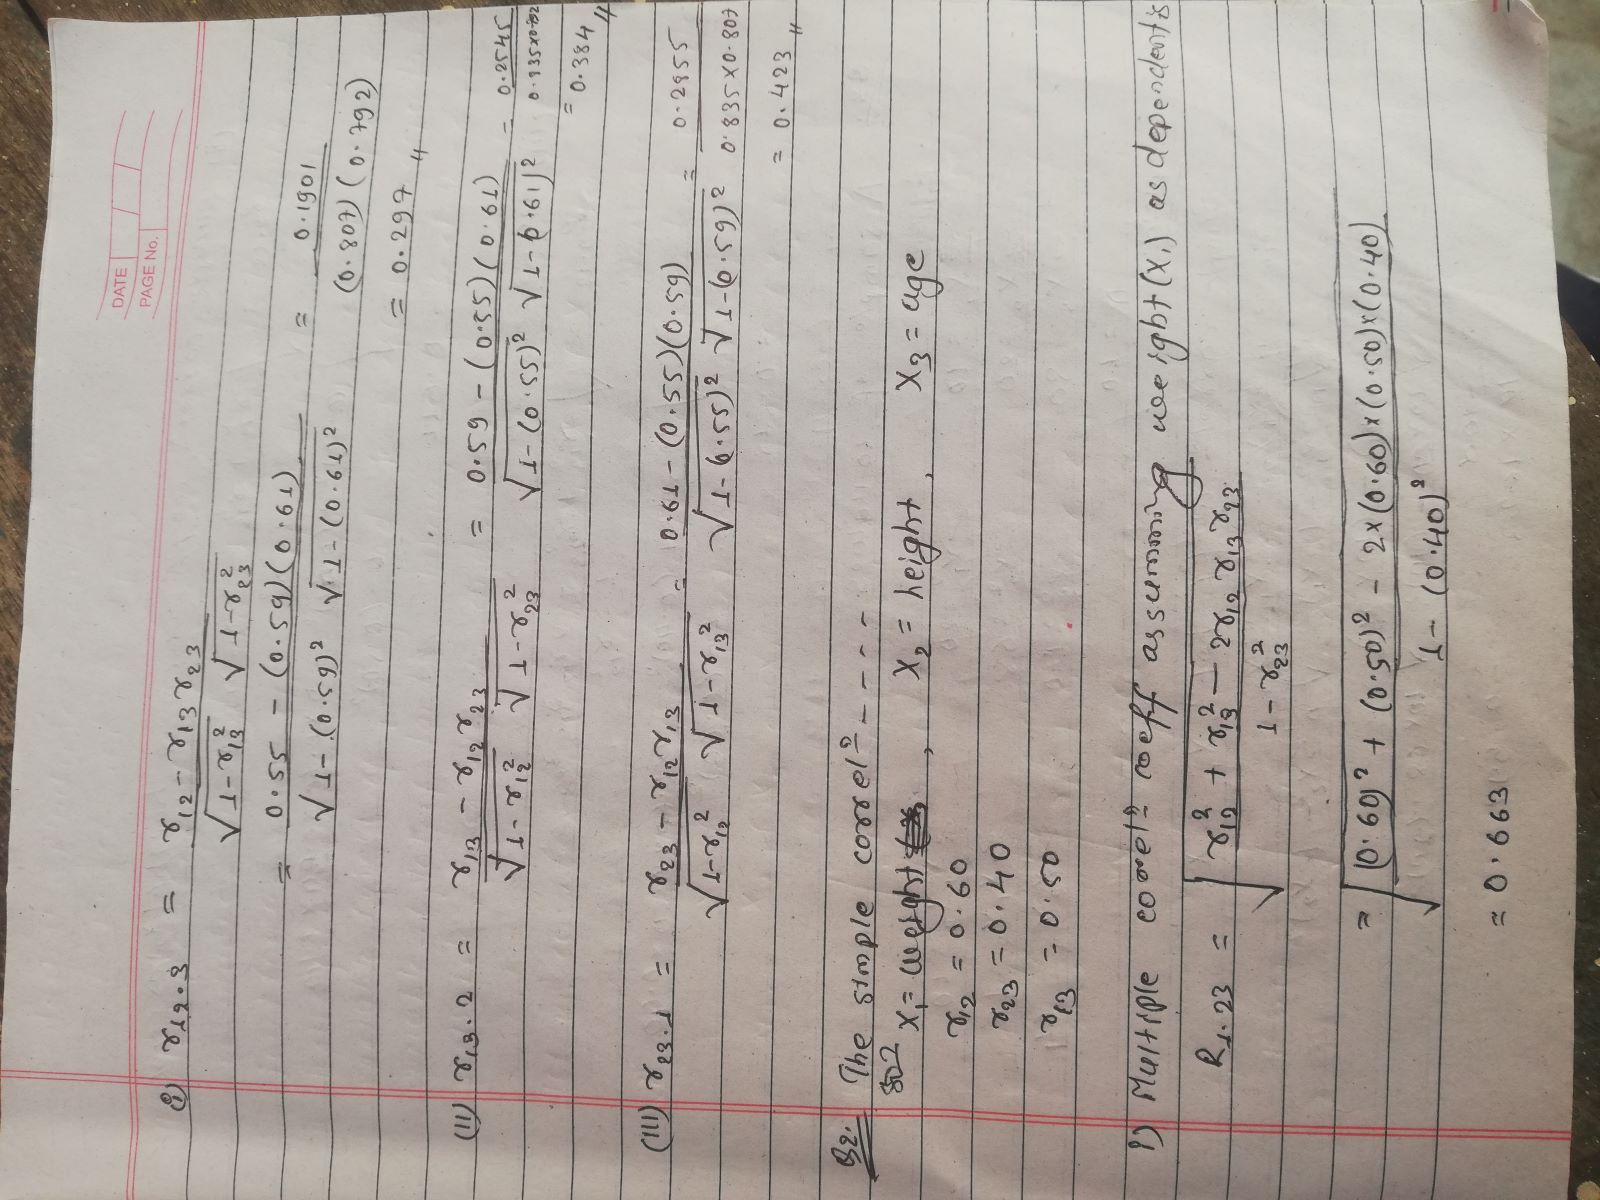 DATE
PAGE No.
i) r12.3 = r12 - r13 r23 / √1-r13² √1-r23²
= 0.55 - (0.59)(0.61) / √1-(0.59)² √1-(0.61)² = 0.1901 / (0.807)(0.792)
= 0.297 〃
(II) r13.2 = r13 - r12 r23 / √1-r12² √1-r23² = 0.59 - (0.55)(0.61) / √1-(0.55)² √1-(0.61)² = 0.2545 / 0.835×0.792
= 0.384 〃
(III) r23.1 = r23 - r12 r13 / √1-r12² √1-r13² = 0.61 - (0.55)(0.59) / √1-(0.55)² √1-(0.59)² = 0.2855 / 0.835×0.807
= 0.423 〃
Q2. The simple correlⁿ - - - -
Solⁿ X1 = weight, X2 = height, X3 = age
r12 = 0.60
r23 = 0.40
r13 = 0.50
i) Multiple correlⁿ coeff assumming weight (X1) as dependent is
R1.23 = √ r12² + r13² - 2r12 r13 r23 / 1 - r23²
= √ (0.60)² + (0.50)² - 2×(0.60)×(0.50)×(0.40) / 1 - (0.40)²
= 0.663